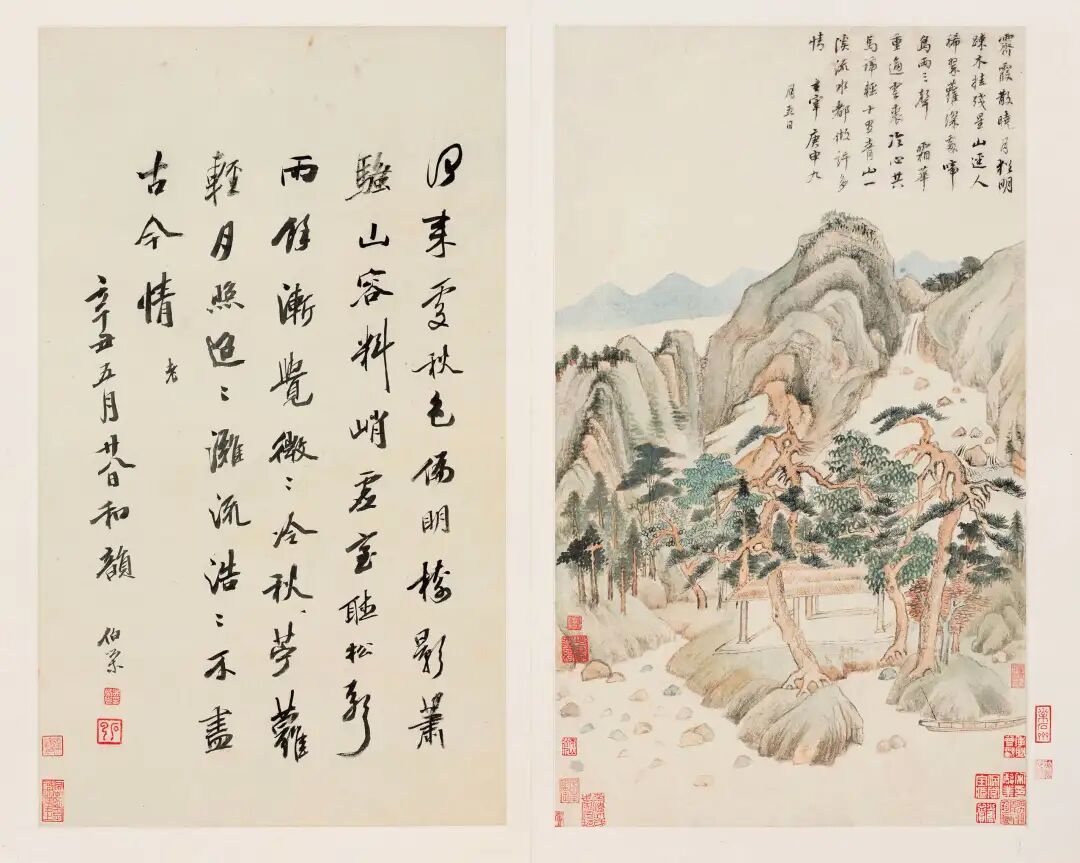 霽霞散曉月猶明
踈木挂殘星山逕人
稀翠蘿深處啼
鳥兩三聲 霜華
重逼雲裘冷心共
馬蹄輕十里青山一
溪流水都做許多
情 玄宰 庚申九
月五日
來處秋色偏明樹影蕭
騷山容料峭虛室聽松聲
雨餘漸覺微〻冷秋、薜蘿
輕月照迢〻灘流浩〻不盡
古今情 老
辛丑五月廿八日和韻 伯榮